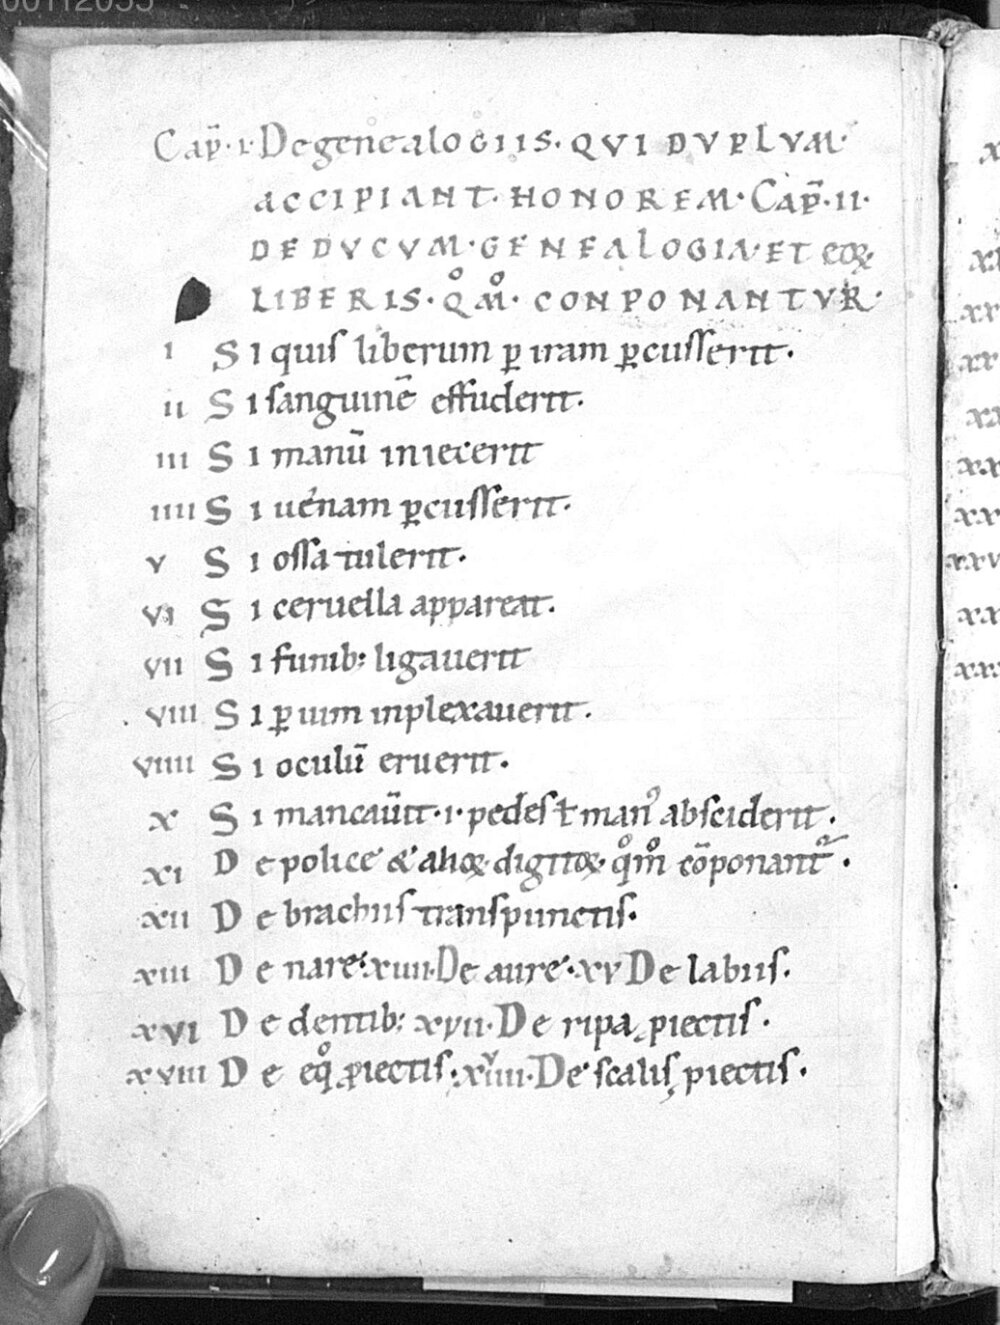 Cap̄·1·De genealogiis·QVI DVPLVM·
ACCIPIANT·HONOREM·Cap̄·II·
DE DVCVM·GENEALOGIA·ET eoꝝ
LIBERIS·Qͦ Mͦ·CONPONANTVR·
I SI quis liberum ꝑ iram ꝑcusserit.
II SI sanguinē effuderit.
III SI manū iniecerit
IIII SI uenam ꝑcusserit.
V SI ossa tulerit.
VI SI ceruella appareat.
VII SI funib; ligauerit
VIII SI ꝑ uim inplexauerit.
VIIII SI oculū eruerit.
X SI mancaūit·i·pedes ł man᾽ absciderit.
XI De police & alioꝝ digitoꝝ qͦmͦ cōponant᷑.
XII De brachiis transpunctis.
XIII De nare·XIIII·De aure·XV De labiis.
XVI De dentib; XVII·De ripa piectis.
XVIII De eqͦ piectis·XVIIII·De scalis piectis.